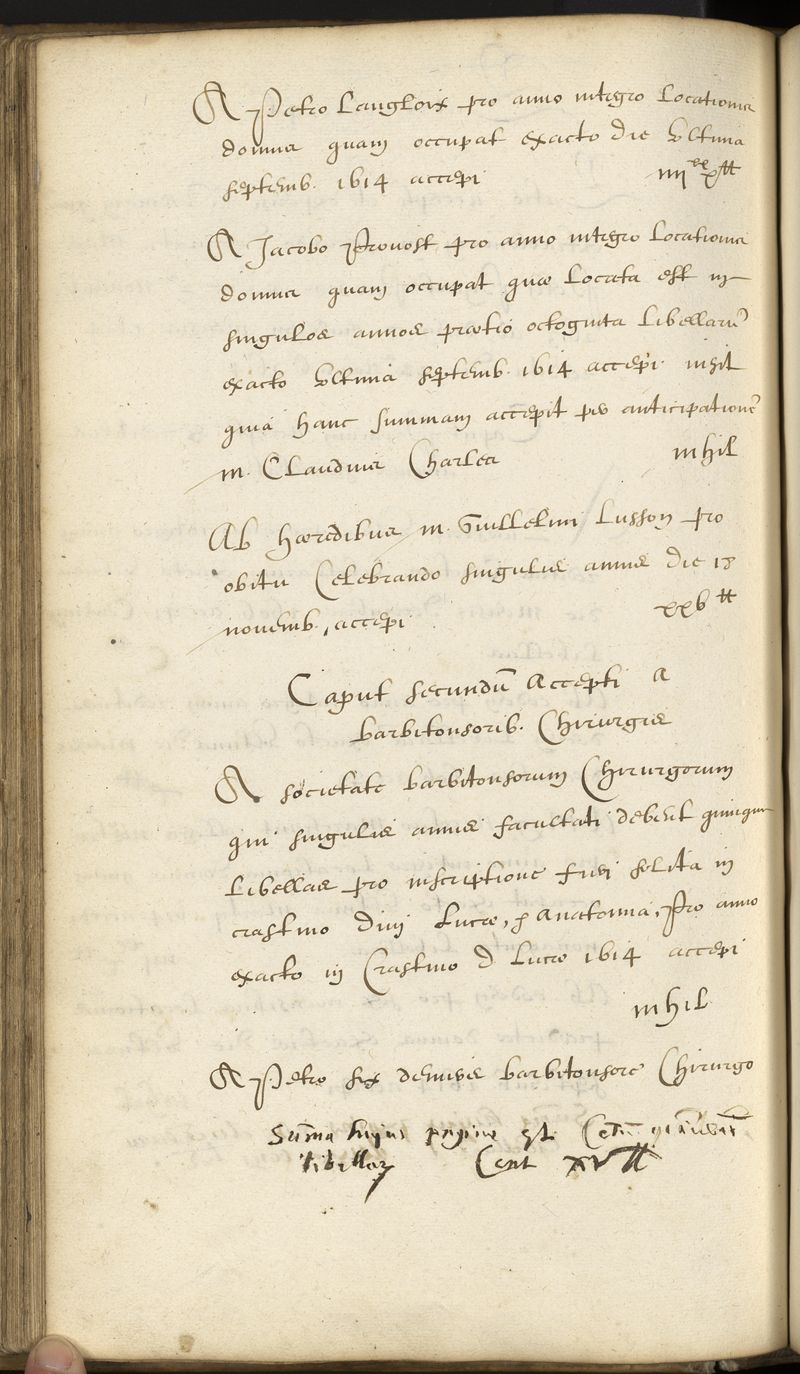 A Petro Langloix pro anno integro locationis
domus quam occupat exacto die ultima
septemb. 1614 accepi iiii^xx x ₶
A Jacobo Provost pro anno integro locationis
domus quam occupat quæ locata est in
singulos annos prætio octoginta libellarū
exacto ultima septemb. 1614 accepi nihil
quia hanc summam accepit per anticipationē
m. Claudius Charles nihil
Ab hæredibus m. Guillelmi Lusson pro
obitu celebrando singulis annis die 18
novemb. accepi xxv ₶
Caput secundū accepti a
barbitonsorib. Chirurgis
A societate barbitonsorum Chirurgorum
qui singulis annis facultati debent quinque
libellas pro inscriptione fieri solita in
crastino divi Lucæ, Pro anno
exacto in Crastino d Lucæ 1614 accepi
nihil
A Petro barbitonsore Chirurgo
Sum̄a hujus paginæ est Cētū
libellar Cent xv ₶